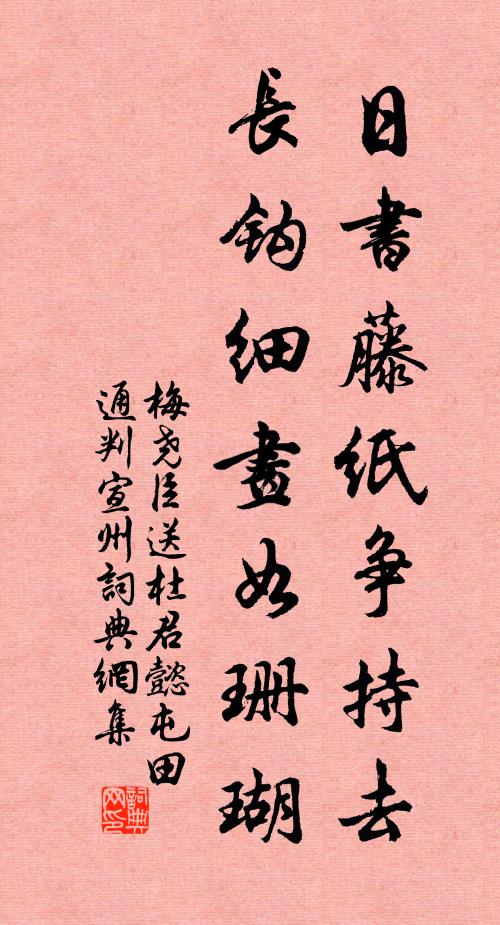 日書藤紙争持去
長鈎細畫如珊瑚
梅尧臣送杜君懿屯田
通判宣州詞典網集
詞典网印